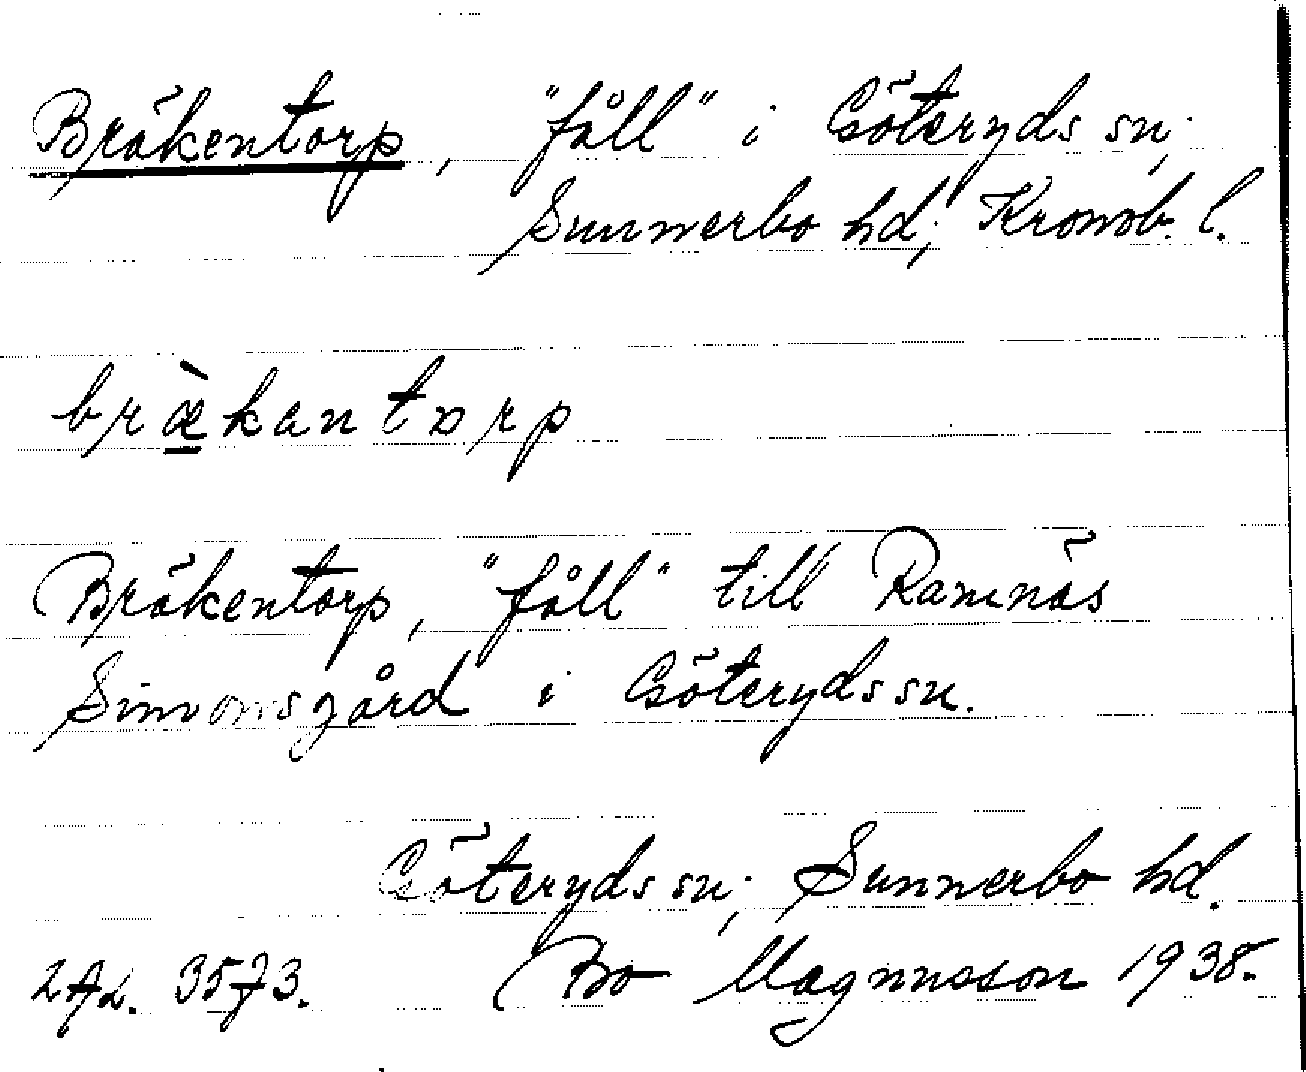 Bräkentorp, "fåll" i Göteryds sn;
Sunnerbo hd; Kronob. l.
bræ̀kantorp
Bräkentorp, "fåll" till Ramnäs
Simonsgård i Göteryds sn.
Göteryds sn; Sunnerbo hd.
3573. Bo Magnusson 1938.